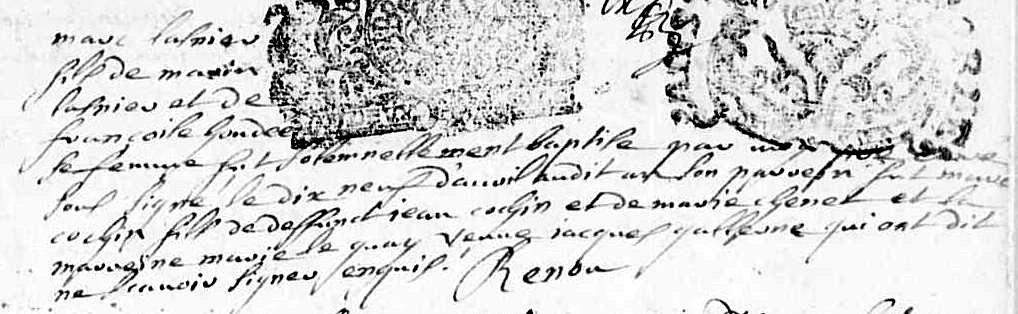 marc lasnier
fils de marin
lasnier et de
francoise
sa femme fut solemnellement baptise par moy
sous signé le dix neuf d'avril audit an son parrein fut marc
cochin fils de deffunct jean cochin et de marie chenet et la
marreine marie le quay veuve jacques qui ont dit
ne scavoir signer enquis. Renou